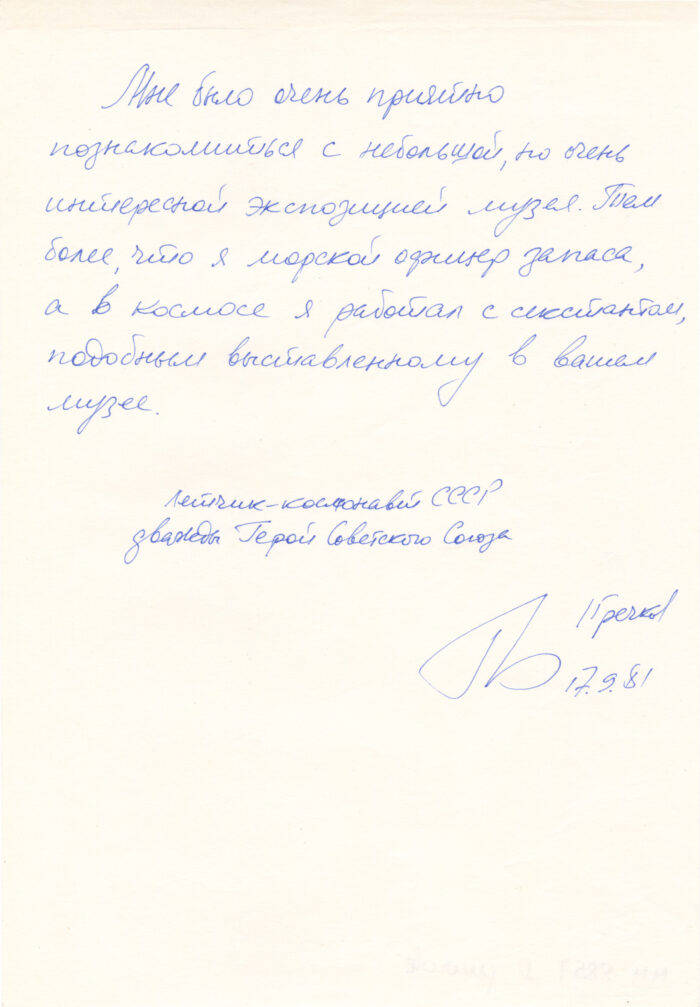 Мне было очень приятно
познакомиться с небольшой, но очень
интересной экспозицией музея. Тем
более, что я морской офицер запаса,
а в космосе я работал с секстантом,
подобным выставленному в вашем
музее.
Летчик-космонавт СССР
дважды Герой Советского Союза
Гречко
17.9.81